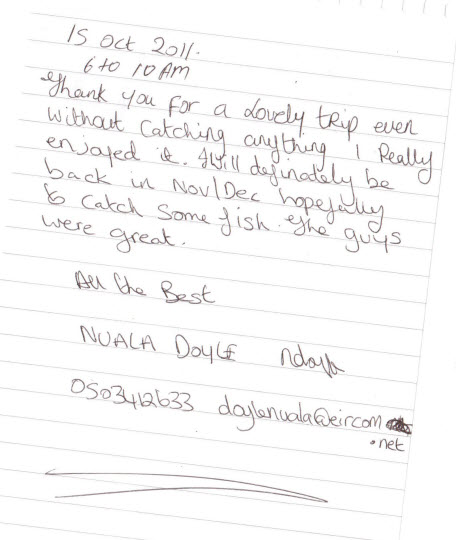 15 Oct 2011.
6 to 10 AM
Thank you for a Lovely trip even
without catching anything I Really
enjoyed it. I will definately be
back in Nov/Dec hopefully
to catch some fish. The guys
were great.
All the Best
NUALA DOYLE ndoyle
0503412633 doylenuala@eircom
.net